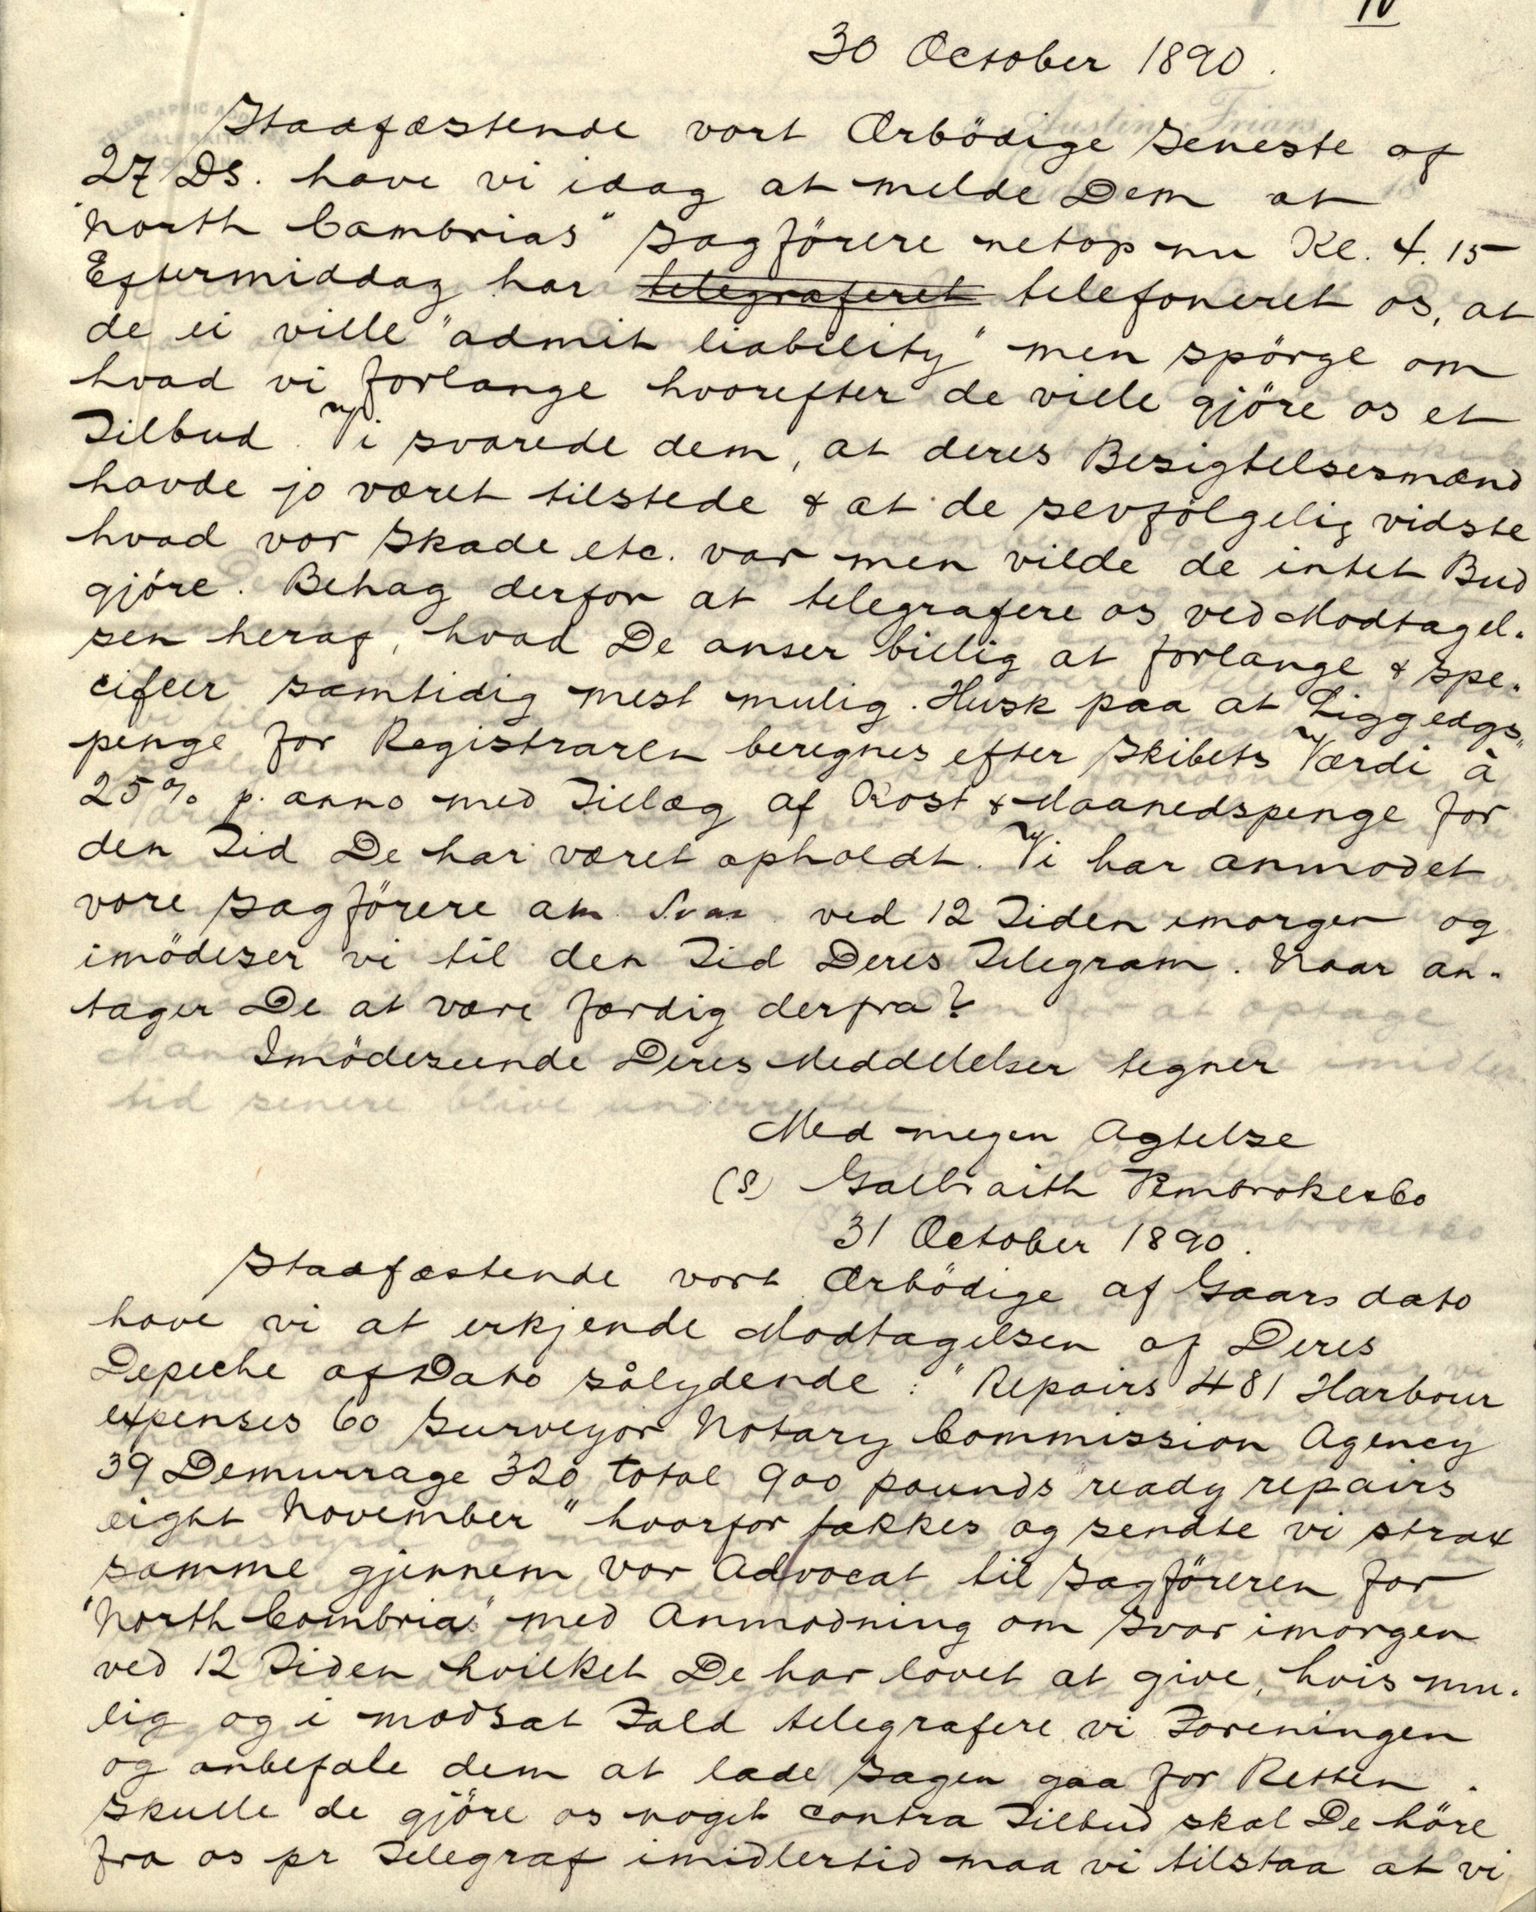 10
30 October 1890.
Stadfæstende vort Ærbödige Seneste af
27 Ds. have vi idag at melde Dem at
"North Cambrias" Sagförere netop nu Kl. 4.15
Eftermiddag har telegraferet telefoneret os, at
de ei ville "admit liability" men spörge om
hvad vi forlange hvorefter de ville gjöre os et
Tilbud. Vi svarede dem, at deres Besigtelsesmænd
havde jo været tilstede & at de selvfölgelig vidste
hvad vor Skade etc. var men vilde de intet Bud
gjöre. Behag derfor at telegrafere os ved Modtagel-
sen heraf, hvad De anser billig at forlange & spe-
cifeer samtidig mest mulig. Husk paa at Liggedgs-
penge for Registraren beregnes efter Skibets Værdi à
25% p. anno med Tillæg af Kost & Maanedspenge for
den Tid De har været opholdt. Vi har anmodet
vore Sagförere om Svar ved 12 Tiden imorgen og
imödeser vi til den Tid Deres Telegram. Naar an-
tager De at være færdig derfra?
Imödeseende Deres Meddelelser tegner
Med megen Agtelse
(S) Galbraith Pembroke & Co
31 October 1890.
Stadfæstende vort Ærbödige af Gaars dato
have vi at erkjende Modtagelsen af Deres
Depeche af Dato sålydende: "Repairs 481 Harbour
expenses 60 Surveyor Notary Commission Agency
39 Demurrage 320 total 900 pounds ready repairs
eight November" hvorfor takkes og sendte vi strax
samme gjennem vor Advocat til Sagföreren for
"North Cambria" med Anmodning om Svar imorgen
ved 12 Tiden hvilket De har lovet at give, hvis mu-
lig og i modsat Fald telegrafere vi Foreningen
og anbefale dem at lade Sagen gaa for Retten.
Skulle de gjöre os noget contra Tilbud skal De höre
fra os pr Telegraf imidlertid maa vi tilstaa at vi